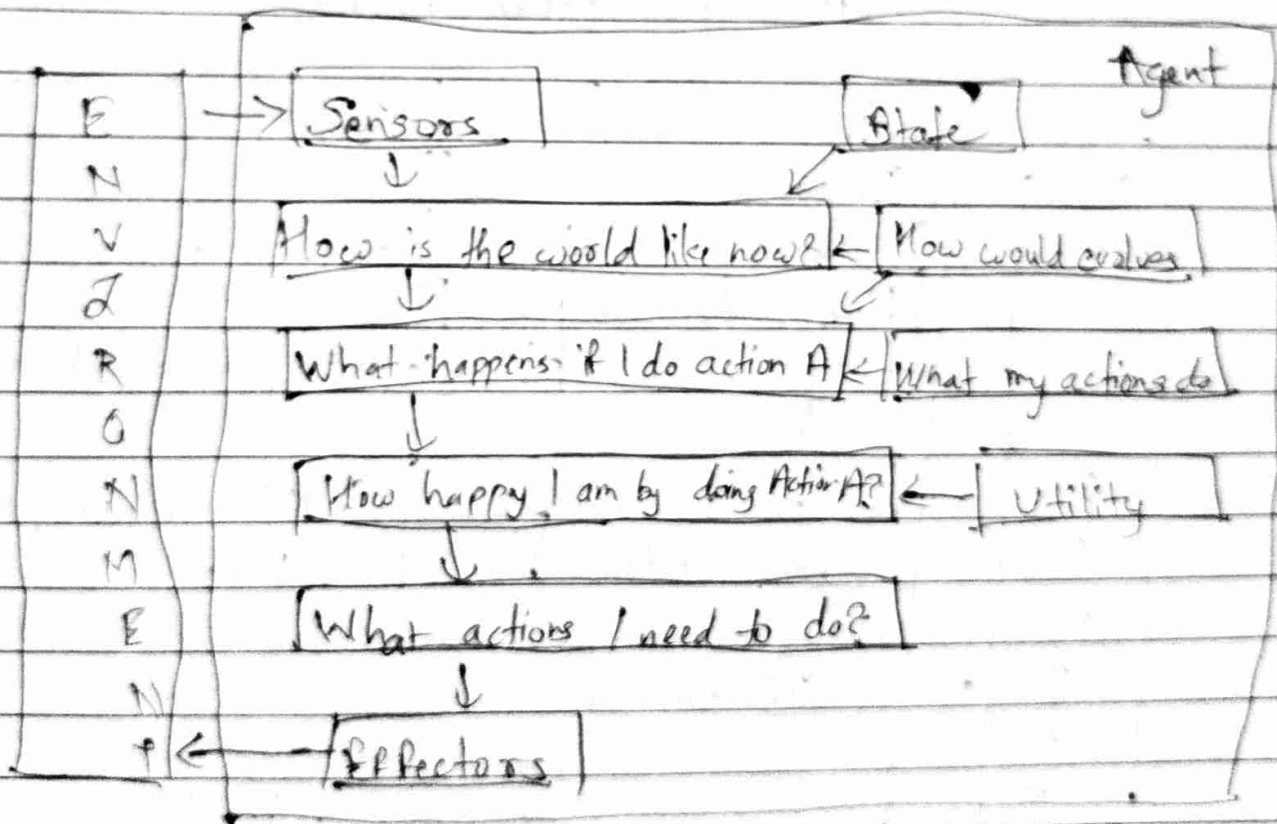 Agent
ENVIRONMENT
Sensors
State
How is the world like now?
How would evolves
What happens if I do action A
What my actions do
How happy I am by doing Action A?
Utility
What actions I need to do?
Effectors